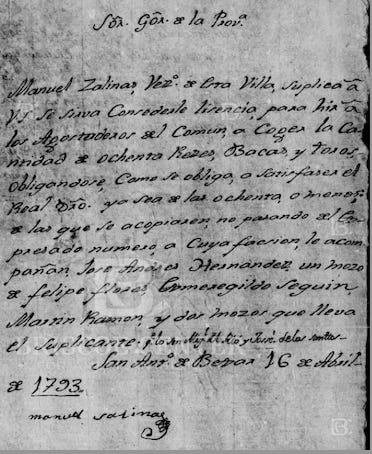 Sõr. Gõr. de la Prov.ª
Manuel Zalinas, Vez.º de Esta Villa, suplica â
V.S. Se sirva Consederle lisencia para hir â
los Agostaderos del Comun, a Coger la Ca-
ntidad de ochenta Rezes, Bacas, y toros
obligandose, Como se obliga, a satisfaser el
Real Dro. ya sea de las ochenta, o menos,
de las que se acopiaren, no pasando del Es-
presado numero, a Cuya facion, le acom-
pañan, Jose Andres Hernandez, un mozo
de felipe flores, Ermeregildo Seguin,
Martin Ramon, y dos mozos que lleva
el Suplicante. y
San Ant.º de Bexar 16 de Abril
de 1793
manuel salinas